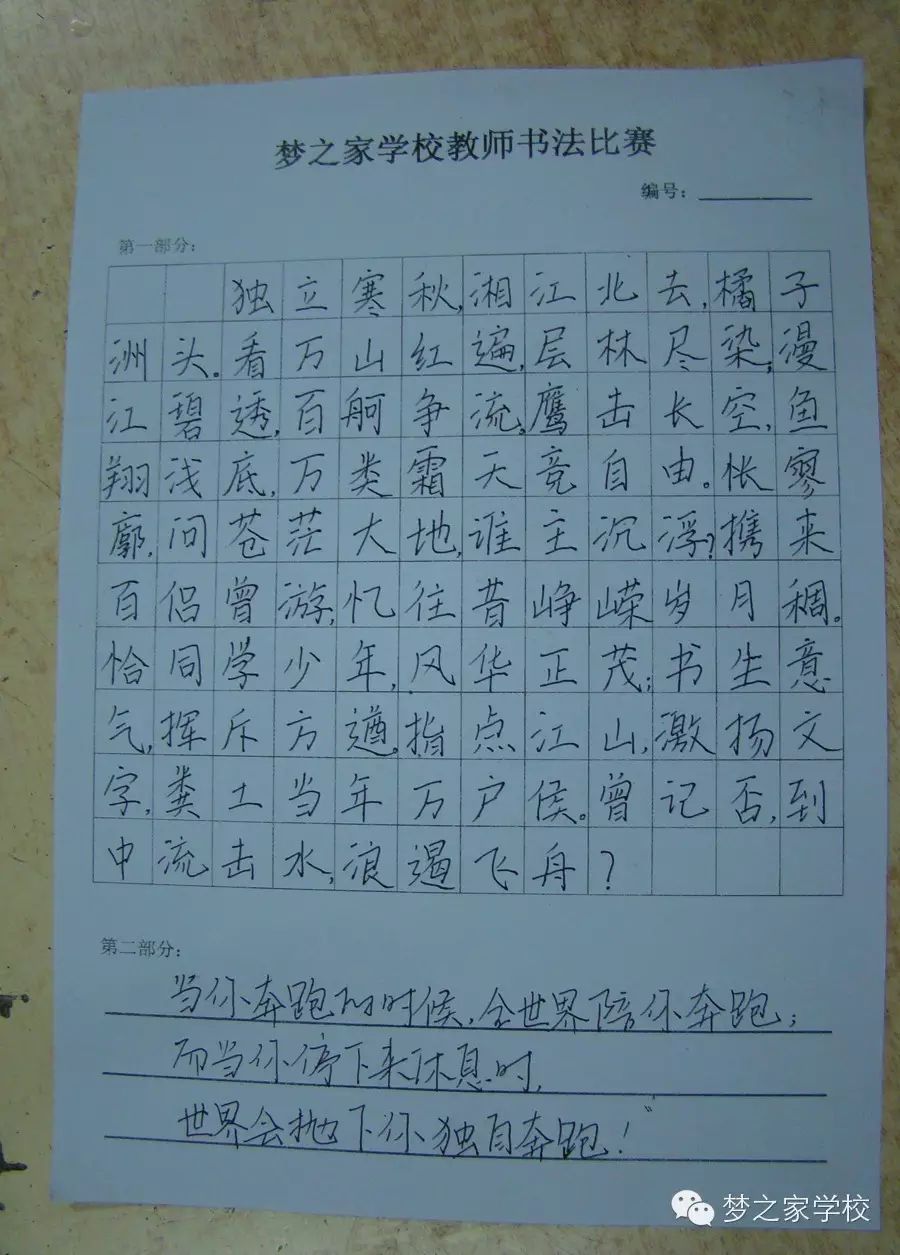 梦之家学校教师书法比赛
编号：
第一部分：
独立寒秋，湘江北去，橘子
洲头。看万山红遍，层林尽染；漫
江碧透，百舸争流。鹰击长空，鱼
翔浅底，万类霜天竞自由。怅寥
廓，问苍茫大地，谁主沉浮？携来
百侣曾游，忆往昔峥嵘岁月稠。
恰同学少年，风华正茂；书生意
气，挥斥方遒。指点江山，激扬文
字，粪土当年万户侯。曾记否，到
中流击水，浪遏飞舟？
第二部分：
当你奔跑的时候，全世界陪你奔跑；
而当你停下来休息时，
世界会抛下你独自奔跑！
梦之家学校